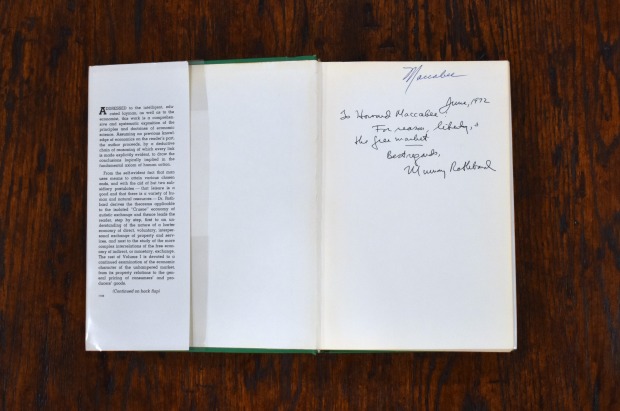 ADDRESSED to the intelligent, edu-
cated layman, as well as to the
economist, this work is a comprehen-
sive and systematic exposition of the
principles and doctrines of economic
science. Assuming no previous knowl-
edge of economics on the reader's part,
the author proceeds, by a deductive
chain of reasoning of which every link
is made explicitly evident, to draw the
conclusions logically implied in the
fundamental axiom of human action.
From the self-evident fact that men
uses means to attain various chosen
ends, and with the aid of but two sub-
sidiary postulates — that leisure is a
good and that there is a variety of hu-
man and natural resources — Dr. Roth-
bard derives the theorems applicable
to the isolated "Crusoe" economy of
autistic exchange and thence leads the
reader, step by step, first to an un-
derstanding of the nature of a barter
economy of direct, voluntary, interper-
sonal exchange of property and serv-
ices, and next to the study of the more
complex interrelations of the free econ-
omy of indirect, or monetary, exchange.
The rest of Volume I is devoted to a
continued examination of the economic
character of the unhampered market,
from its property relations to the gen-
eral pricing of consumers' and pro-
ducers' goods.
(Continued on back flap)
Maccabee
June, 1972
To Howard Maccabee,
For reason, liberty, &
the free market
Best regards,
Murray Rothbard